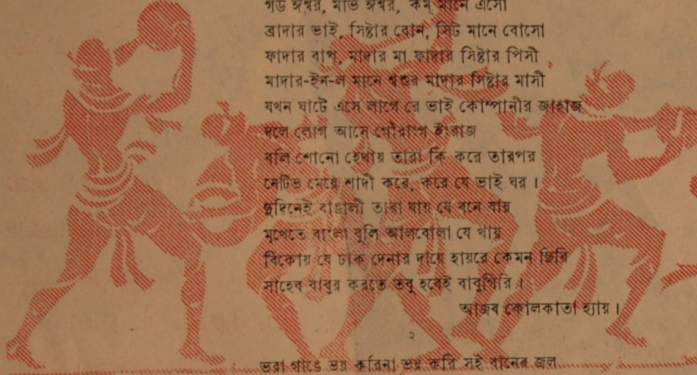 গড ঈশ্বর, লর্ড ঈশ্বর, কম্ মানে এসো
ব্রাদার ভাই, সিষ্টার বোন, সিট মানে বোসো
ফাদার বাপ, মাদার মা ফাদার সিষ্টার পিসী
মাদার-ইন-ল মানে শ্বশুর মাদার সিষ্টার মাসী
যখন ঘাটে এসে লাগে রে ভাই কোম্পানীর জাহাজ
দলে লোগ আসে গোরাংগ ইংরাজ
বলি শোনো হেথায় তারা কি করে তারপর
নেটিভ মেয়ে শাদী করে, করে যে ভাই ঘর ।
দুদিনেই বাঙালী তারা যায় যে বনে যায়
মুখেতে বাংলা বুলি আলবোলা যে খায়
বিকোয় যে ঢাক দেনার দায়ে হায়রে কেমন ছিরি
সাহেব বাবুর করতে তবু হবেই বাবুগিরি ।
আজব কোলকাতা হ্যায় ।
২
ভরা গাঙে ভয় করিনা ভয় করি সই বানের জল